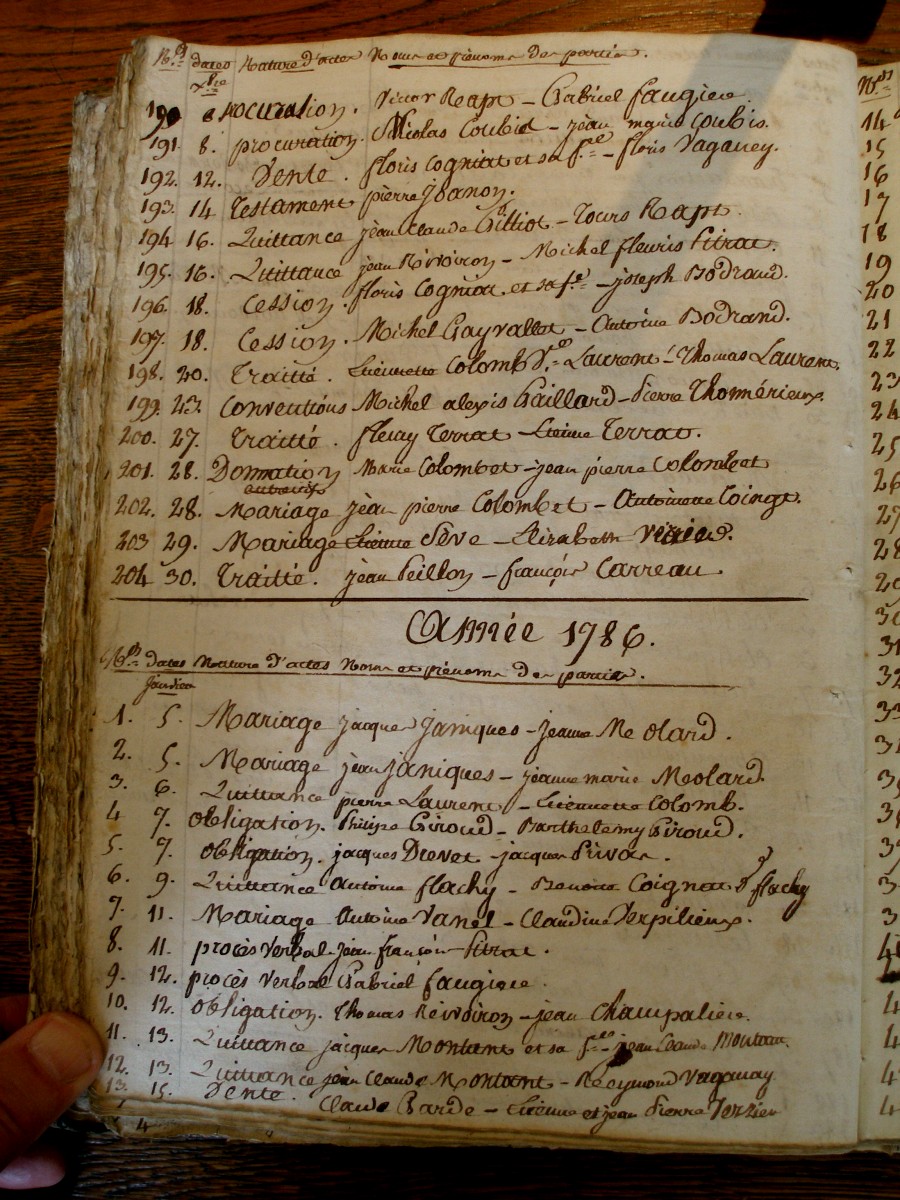 N.os dates Nature d'actes Noms et prénoms Des parties.
Xbre
190 procuration. Victor Rapt - Gabriel faugiere.
191 8. procuration. Nicolas Coubis - jean marie Coubis.
192. 12. Vente. floris Cogniat et sa fe - floris Vaganey.
193. 14 Testament pierre
194 16. Quittance jean Claude Gilliot - Rapt.
195. 16. Quittance jean Rivoiron - Michel fleuris Pitrat.
196. 18. Cession. floris Cogniat et sa fe - joseph Bodrand.
197. 18. Cession. Michel Gayvallet - Antoine Bodrand.
198. 20. Traitté. Etiennette Colomb Laurent - Thomas Laurent.
199. 23. Conventions Michel alexis Gaillard - Pierre Thomérieux.
200. 27. Traitté. fleury Terrat - Etienne Terrat.
201. 28. Donnation Marie Colombet - jean pierre Colombet
entrevifs
202. 28. Mariage jean pierre Colombet - Antoinette Coinge.
203 29. Mariage Etienne Sève - Elizabeth
204 30. Traitté. jean Peillon - françois Carreau.
Année 1786.
N.os dates Nature d'actes Noms et prénoms Des parties.
janvier
1. 5. Mariage jacques janiques - jeanne Meolard.
2. 5. Mariage jean janiques - jeanne marie Meolard.
3. 6. Quittance pierre Laurent - Etiennette Colomb.
4 7. obligation. Philipe Giroud - Barthelemy Giroud.
5. 7. obligation. jacques Drevet - jacques Privas.
6. 9. Quittance Antoine flachy - Benoite Coignat flachy
7. 11. Mariage Antoine Vanel - Claudine Verpilieux.
8. 11. procès verbal jean françois Pitrat.
9. 12. procès verbal Gabriel faugiere.
10. 12. obligation. Thomas Rivoiron - jean Champalier.
11. 13. Quittance jacques Montant et sa fe - jean Claude Montant.
12. 13. Quittance jean Claude Montant - Reymond Vaganay.
13. 15. Vente. Claude Barde - Etienne et jean Pierre
N.os
14
15
16
17
18
19
20
21
22
23
24
25
26
27
28
29
30
31
32
33